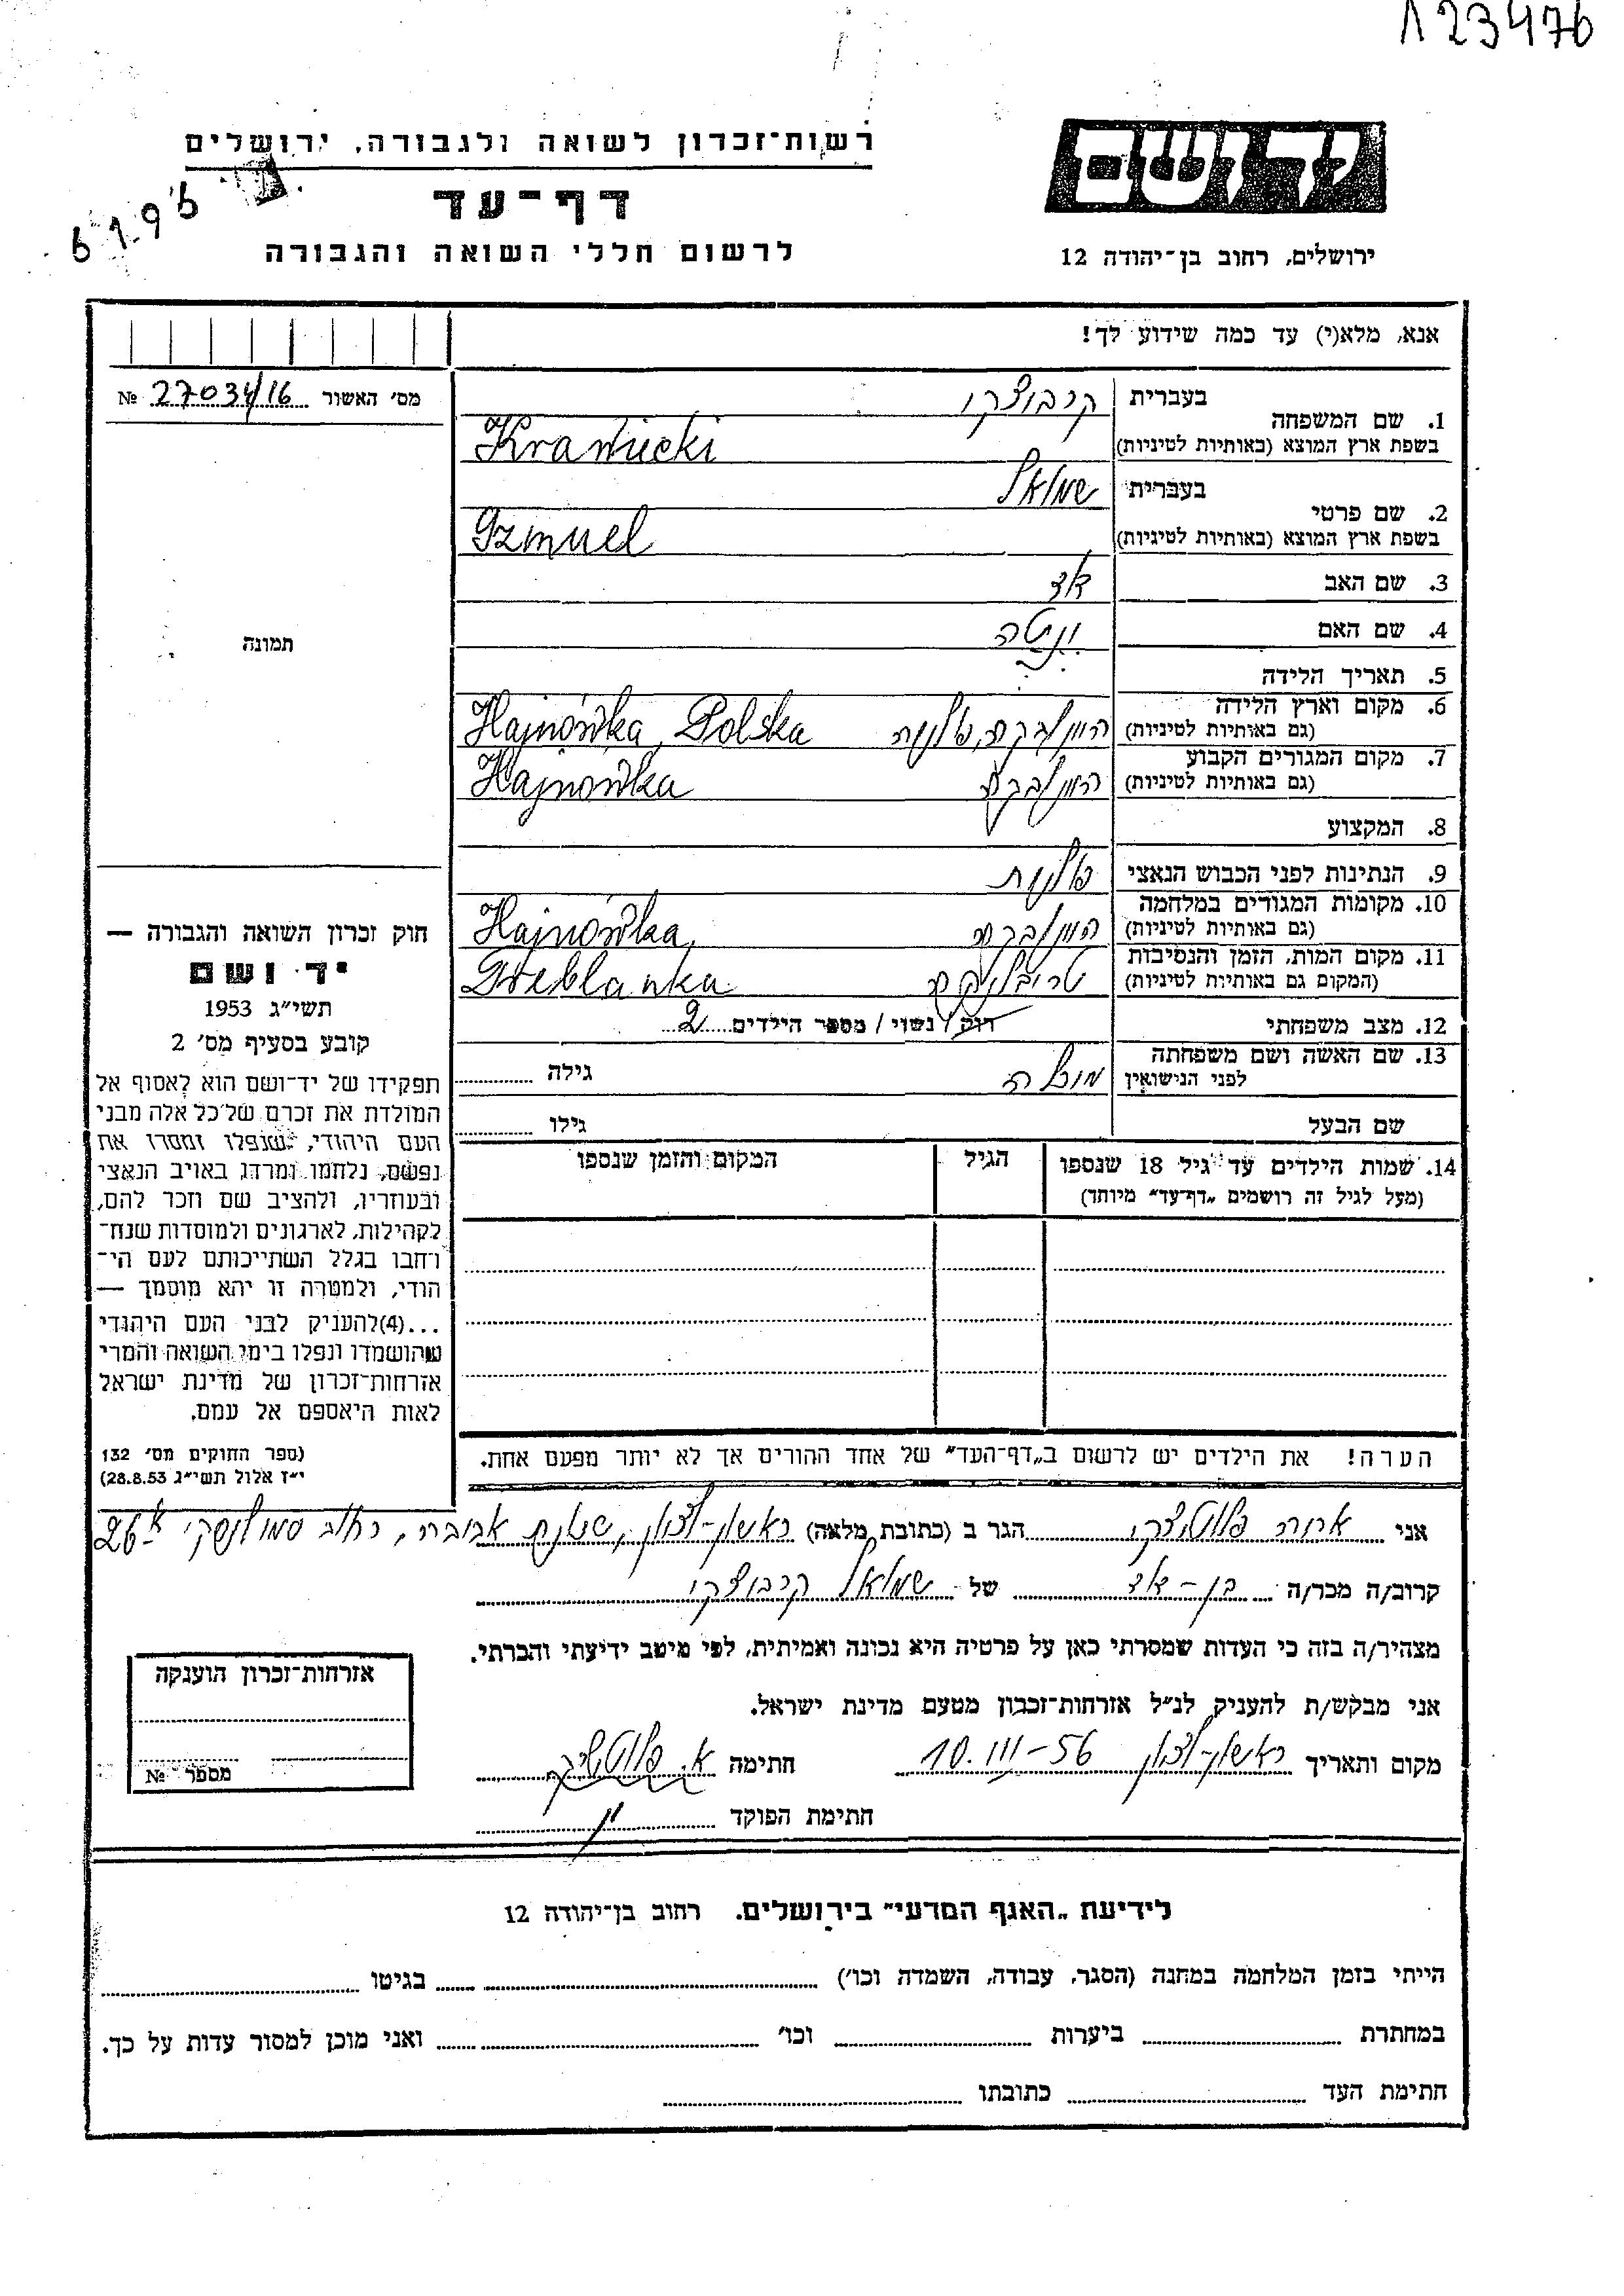 123476
רשות־זכרון לשואה ולגבורה, ירושלים
דף־עד
לרשום חללי השואה והגבורה
6.1.95
ידושם
ירושלים, רחוב בן־יהודה 12
אנא, מלא(י) עד כמה שידוע לך!
מס׳ האשור 27034/16 №
תמונה
1. שם המשפחה
בעברית
בשפת ארץ המוצא (באותיות לטיניות)
Krawiecki
2. שם פרטי
בעברית שמואל
בשפת ארץ המוצא (באותיות לטיניות)
Szmuel
3. שם האב
4. שם האם
5. תאריך הלידה
6. מקום וארץ הלידה
(גם באותיות לטיניות)
Hajnówka, Polska
7. מקום המגורים הקבוע
(גם באותיות לטיניות)
Hajnówka
8. המקצוע
9. הנתינות לפני הכבוש הנאצי פולנית
10. מקומות המגורים במלחמה
(גם באותיות לטיניות)
Hajnówka,
11. מקום המות, הזמן והנסיבות
(המקום גם באותיות לטיניות)
טרבלינקה Treblanka
12. מצב משפחתי רווק / נשוי / מספר הילדים 2
13. שם האשה ושם משפחתה
לפני הנישואין
גילה
שם הבעל גילו
14. שמות הילדים עד גיל 18 שנספו
(מעל לגיל זה רושמים „דף־עד״ מיוחד)
הגיל
המקום והזמן שנספו
הערה! את הילדים יש לרשום ב„דף־העד״ של אחד ההורים אך לא יותר מפעם אחת.
חוק זכרון השואה והגבורה —
יד ושם
תשי״ג 1953
קובע בסעיף מס׳ 2
תפקידו של יד־ושם הוא לאסוף אל
המולדת את זכרם של כל אלה מבני
העם היהודי, שנפלו ומסרו את
נפשם, נלחמו ומרדו באויב הנאצי
ובעוזריו, ולהציב שם וזכר להם,
לקהילות, לארגונים ולמוסדות שנח־
רחבו בגלל השתייכותם לעם הי־
הודי, ולמטרה זו יהא מוסמך —
...(4)להעניק לבני העם היהודי
שהושמדו ונפלו בימי השואה והמרי
אזרחות־זכרון של מדינת ישראל
לאות היאספם אל עמם.
(ספר החוקים מס׳ 132
י״ז אלול תשי״ג 28.8.53)
אני הגר ב (כתובת מלאה) ראשון-לציון, שכונת רחוב סמולנסקי 26
קרוב/ה מכר/ה של שמואל
מצהיר/ה בזה כי העדות שמסרתי כאן על פרטיה היא נכונה ואמיתית, לפי מיטב ידיעתי והכרתי.
אני מבקש/ת להעניק לנ״ל אזרחות־זכרון מטעם מדינת ישראל.
מקום ותאריך ראשון-לציון 10.III-56 חתימה
חתימת הפוקד
אזרחות־זכרון הוענקה
מספר №
לידיעת „האגף המדעי״ בירושלים. רחוב בן־יהודה 12
הייתי בזמן המלחמה במחנה (הסגר, עבודה, השמדה וכו׳) בגיטו
במחתרת ביערות וכו׳ ואני מוכן למסור עדות על כך.
חתימת העד כתובתו